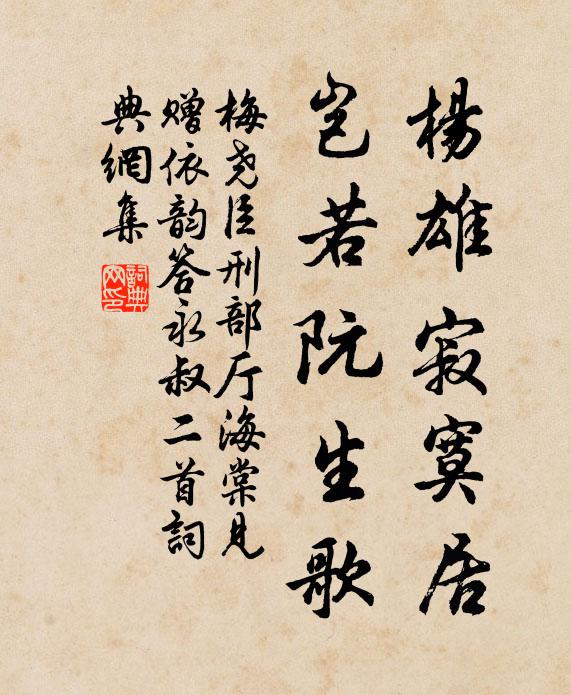 楊雄寂寞居
岂若阮生歌
梅尧臣刑部厅海棠見
贈依韵答永叔二首詞
典網集
詞典網印